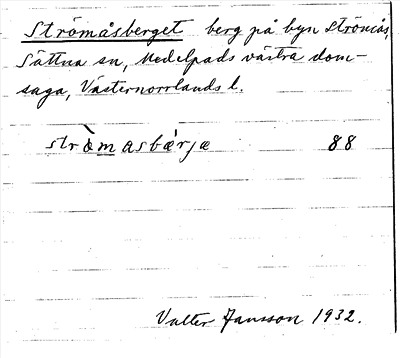 Strömåsberget berg på byn Strömås,
Sättna sn, Medelpads västra dom-
saga, Västernorrlands l.
strö̀masbǽrjæ 88
Valter Jansson 1932.